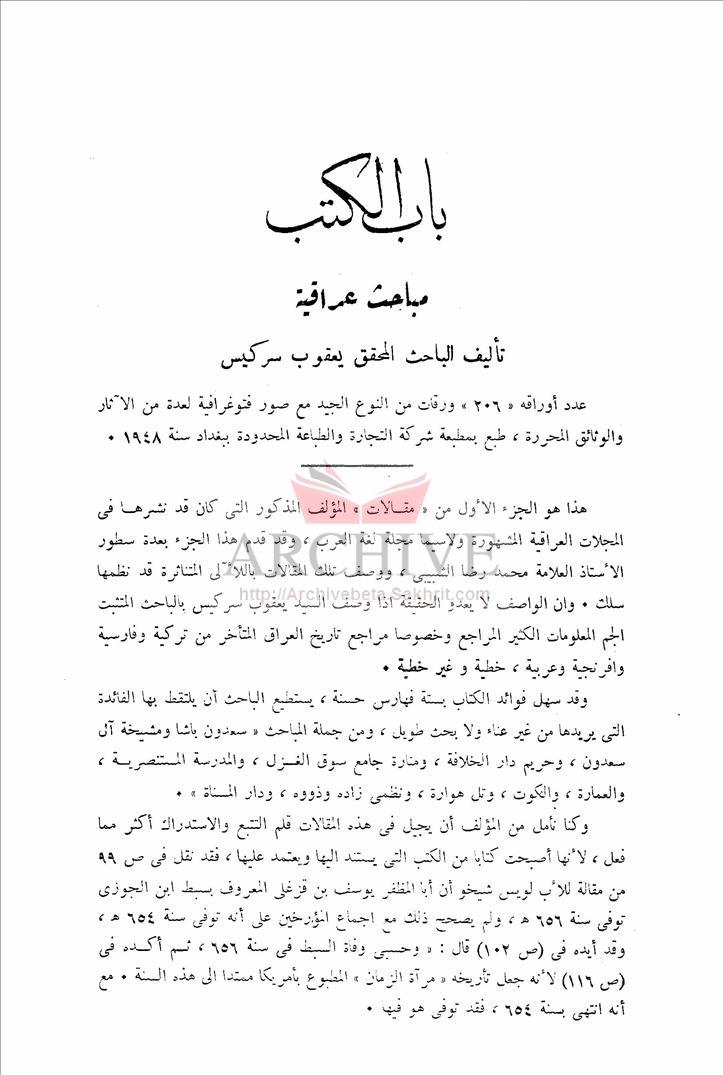 باب الكتب
مباحث عراقية
تأليف الباحث المحقق يعقوب سركيس
عدد أوراقه « ٢٠٦ » ورقات من النوع الجيد مع صور فتوغرافية لعدة من الآثار
والوثائق المحررة ، طبع بمطبعة شركة التجارة والطباعة المحدودة ببغداد سنة ١٩٤٨ ٠
هذا هو الجزء الأول من « مقالات » المؤلف المذكور التى كان قد نشرها فى
المجلات العراقية المشهورة ولاسيما مجلة لغة العرب ، وقد قدم هذا الجزء بعدة سطور
الأستاذ العلامة محمد رضا الشبيبى ، ووصف تلك المقالات باللآلى المتناثرة قد نظمها
سلك ٠ وان الواصف لا يعدو الحقيقة اذا وصف السيد يعقوب سركيس بالباحث المتثبت
الجم المعلومات الكثير المراجع وخصوصا مراجع تاريخ العراق المتأخر من تركية وفارسية
وافرنجية وعربية ، خطية و غير خطية ٠
وقد سهل فوائد الكتاب بستة فهارس حسنة ، يستطيع الباحث أن يلتقط بها الفائدة
التى يريدها من غير عناء ولا بحث طويل ، ومن جملة المباحث « سعدون باشا ومشيخة آل
سعدون ، وحريم دار الخلافة ، ومنارة جامع سوق الغزل ، والمدرسة المستنصرية ،
والعمارة ، والكوت ، وتل هوارة ، ونظمى زاده وذووه ، ودار المسناة » ٠
وكنا نأمل من المؤلف أن يجيل فى هذه المقالات قلم التتبع والاستدراك أكثر مما
فعل ، لأنها أصبحت كتابا من الكتب التى يستند اليها ويعتمد عليها ، فقد نقل فى ص ٩٩
من مقالة للأب لويس شيخو أن أبا المظفر يوسف بن قزغلى المعروف بسبط ابن الجوزى
توفى سنة ٦٥٦ ه ، ولم يصحح ذلك مع اجماع المؤرخين على أنه توفى سنة ٦٥٤ ه ،
وقد أيده فى (ص ١٠٢) قال : « وحسبى وفاة السبط فى سنة ٦٥٦ ، ثم أكده فى
(ص ١١٦) لأنه جعل تأريخه « مرآة الزمان » المطبوع بأمريكا ممتدا الى هذه السنة ٠ مع
أنه انتهى بسنة ٦٥٤ ، فقد توفى هو فيها ٠
ARCHIVE
http://Archivebeta.Sakhrit.com